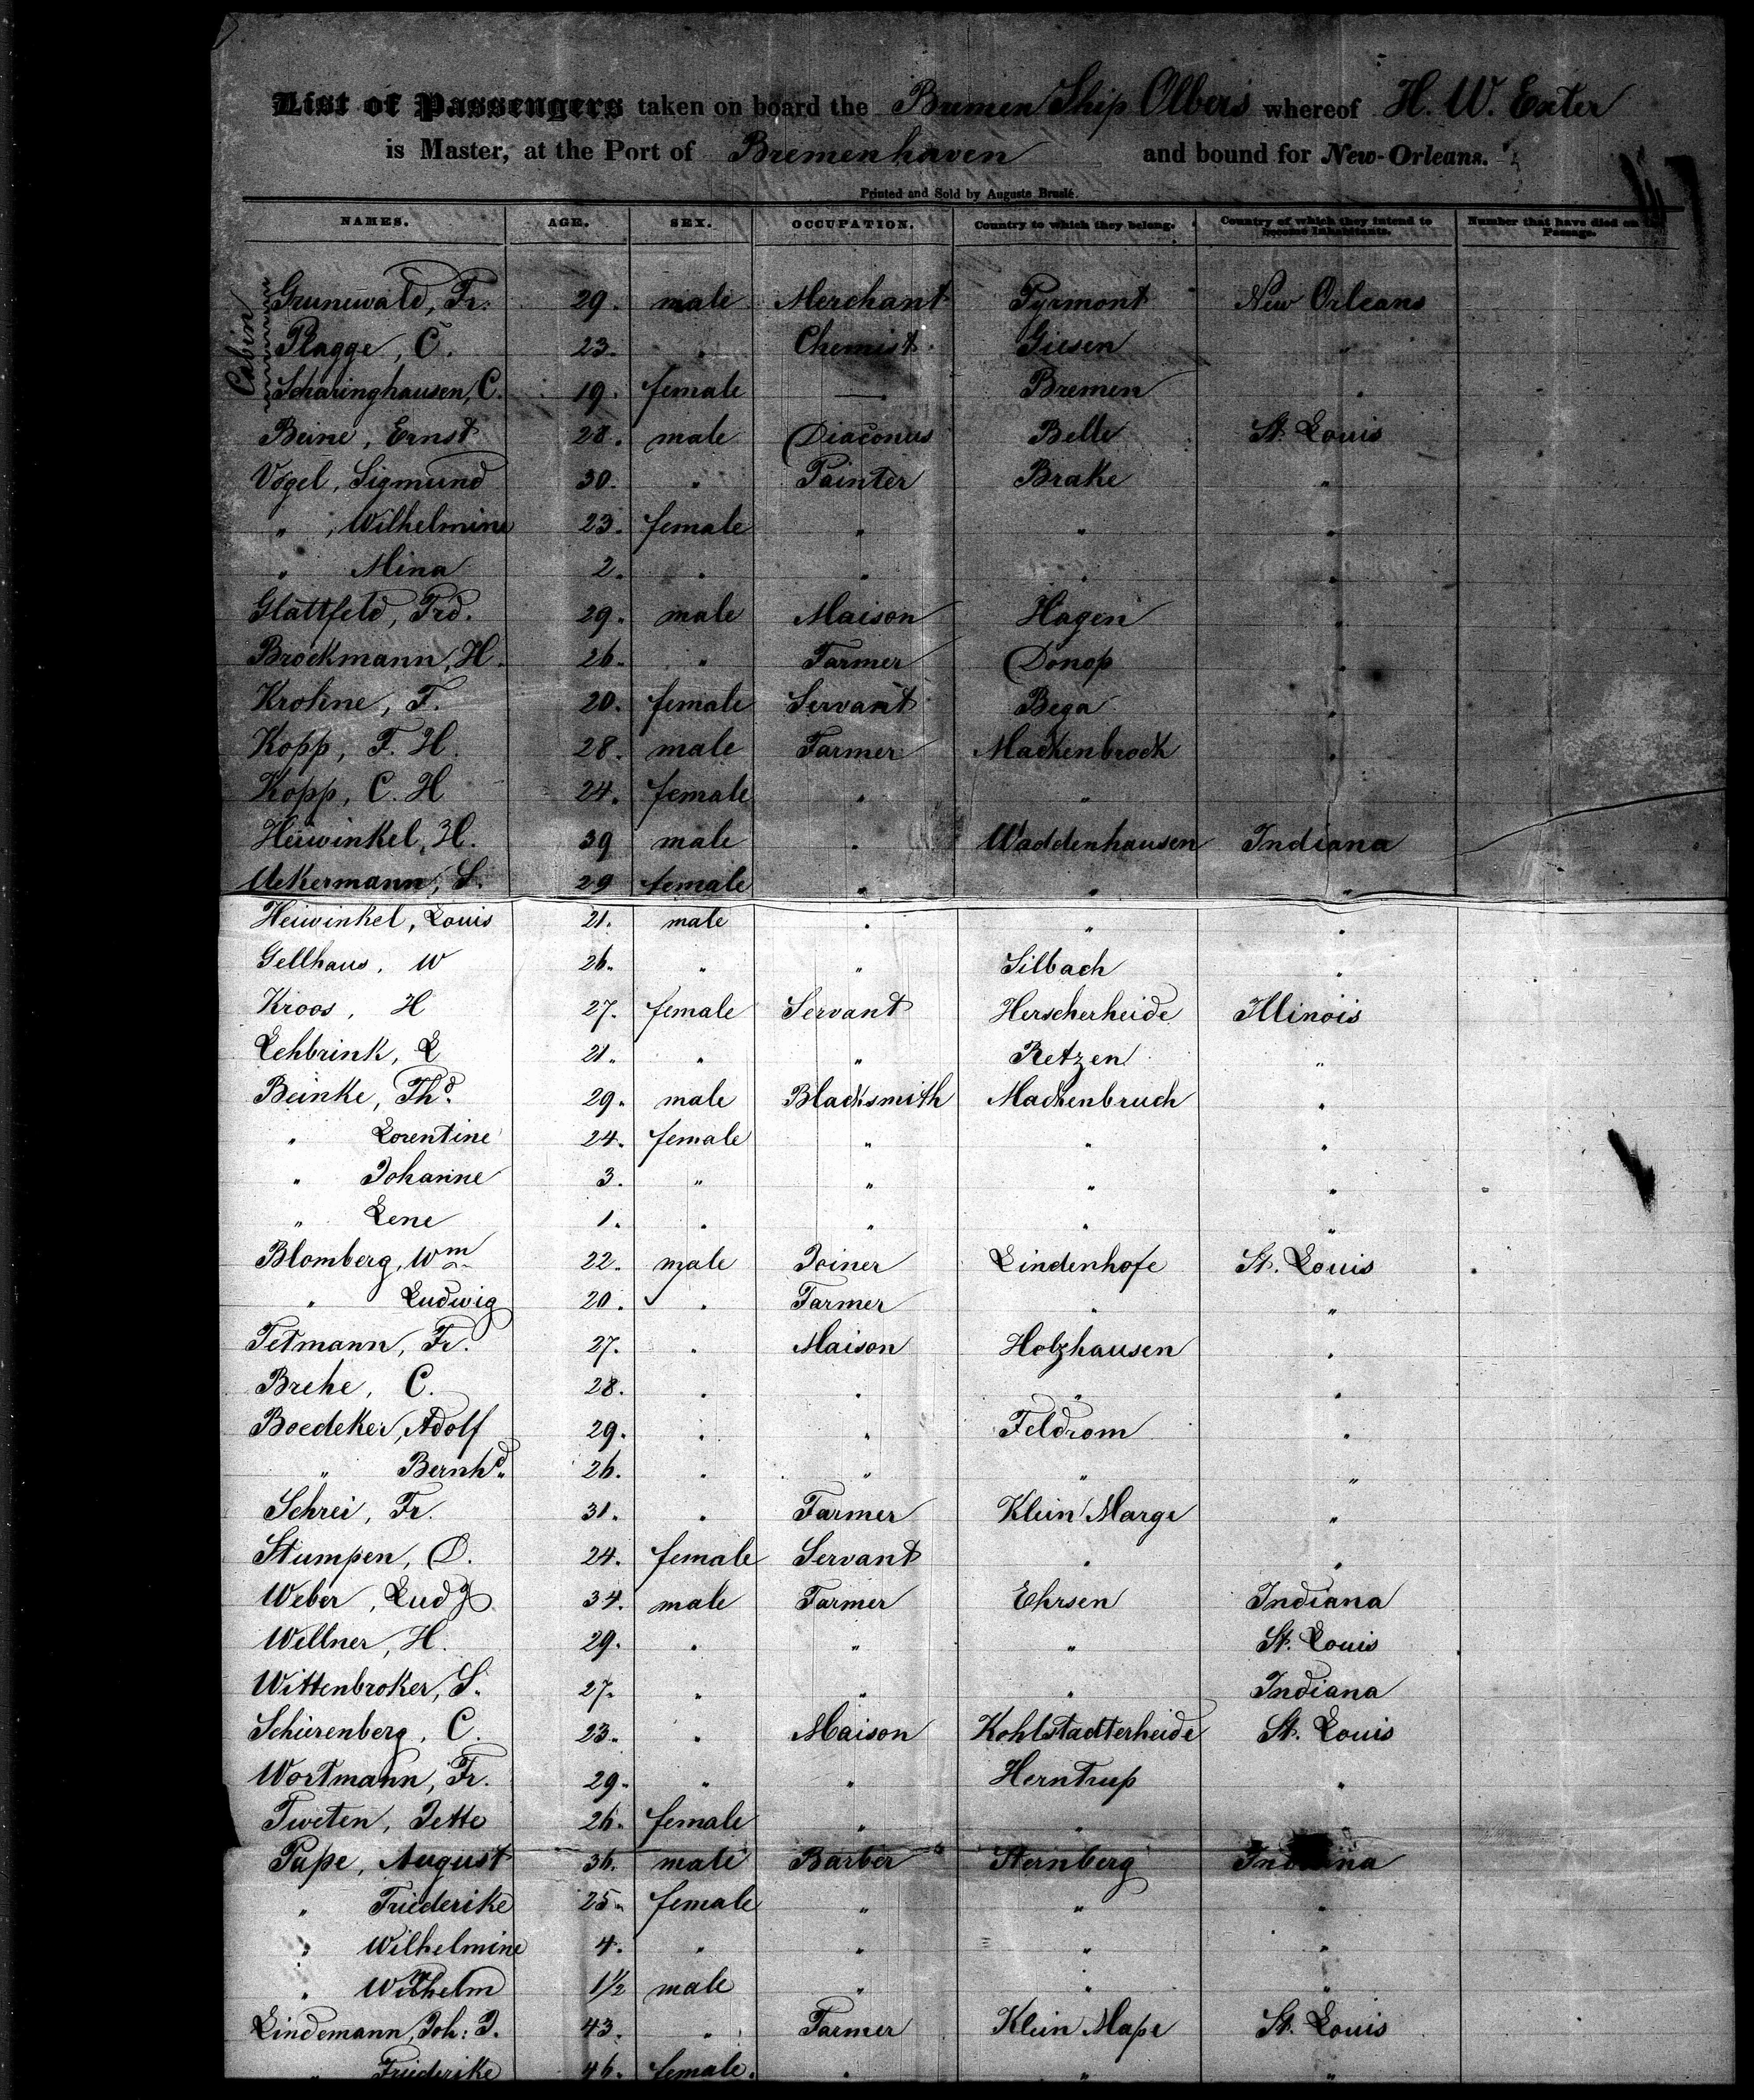 List of Passengers taken on board the Bremen Ship Olbers whereof H. W. Exter
is Master, at the Port of Bremenhaven and bound for New-Orleans.
Printed and Sold by Auguste Bruslé.
NAMES. AGE. SEX. OCCUPATION. Country to which they belong. Country of which they intend to become Inhabitants. Number that have died on Passage.
Cabin
Grunewald, Fr. 29. male Merchant Pyrmont New Orleans
Plagge, C. 23. " Chemist Giesen "
Scharinghausen, C. 19. female — Bremen "
Beine, Ernst 28. male Diaconus Belle St. Louis
Vogel, Sigmund 30. " Painter Brake "
" , Wilhelmine 23. female " " "
" Mina 2. " " " "
Glattfeld, Frd. 29. male Maison Hagen "
Brockmann, H. 26. " Farmer Donop "
Krohne, F. 20. female Servant Bega "
Kopp, F. H. 28. male Farmer Mackenbrock "
Kopp, C. H 24. female " " "
Heiwinkel, H. 39 male " Waddenhausen Indiana
Uekermann, S. 29 female " " "
Heiwinkel, Louis 21. male " " "
Gellhaus, W 26. " " Silbach "
Kroos, H 27. female Servant Herscherheide Illinois
Lehbrink, L 21. " " Retzen "
Beinke, Thd. 29. male Blacksmith Mackenbruch "
" Lorentine 24. female " " "
" Johanne 3. " " " "
" Lene 1. " " " "
Blomberg, Wm 22. male Joiner Lindenhofe St. Louis
" Ludwig 20. " Farmer " "
Tetmann, Fr. 27. " Maison Holzhausen "
Brehe, C. 28. " " " "
Boedeker, Adolf 29. " " Feldrom "
" Bernhd. 26. " " " "
Schrei, Fr. 31. " Farmer Klein Marge "
Stumpen, D. 24. female Servant " "
Weber, Ludg 34. male Farmer Ehrsen Indiana
Wellner, H. 29. " " " St. Louis
Wittenbroker, S. 27. " " " Indiana
Schürenberg, C. 23. " Maison Kohlstadterheide St. Louis
Wortmann, Fr. 29. " " Herntrup "
Tweten, Jette 26. female " " "
Pape, August 36. male Barber Sternberg Indiana
" Friederike 25. female " " "
" Wilhelmine 4. " " " "
" Wilhelm 1½ male " " "
Lindemann, Joh: J. 43. " Farmer Klein Mape St. Louis
" Friederike 46. female. " " "